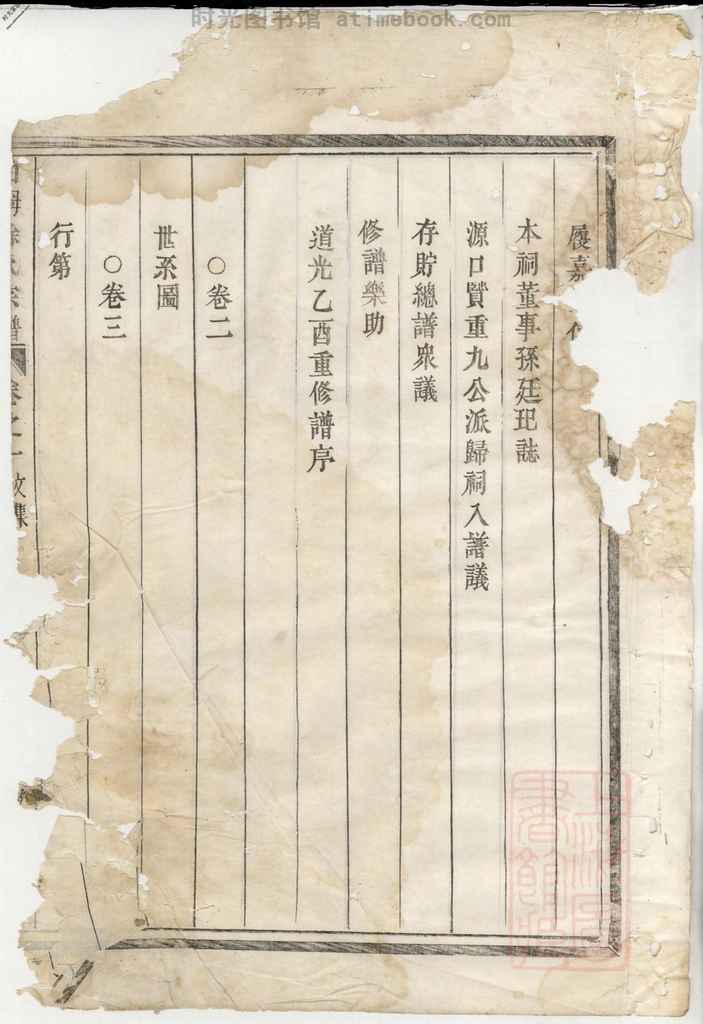 时光图书馆 atimebook.com
履嘉
本祠董事孫廷玘誌
源口贊重九公派歸祠入譜議
存貯總譜衆議
修譜樂助
道光乙酉重修譜序
○卷二
世系圖
○卷三
行第
徐氏宗譜 卷之一 文集